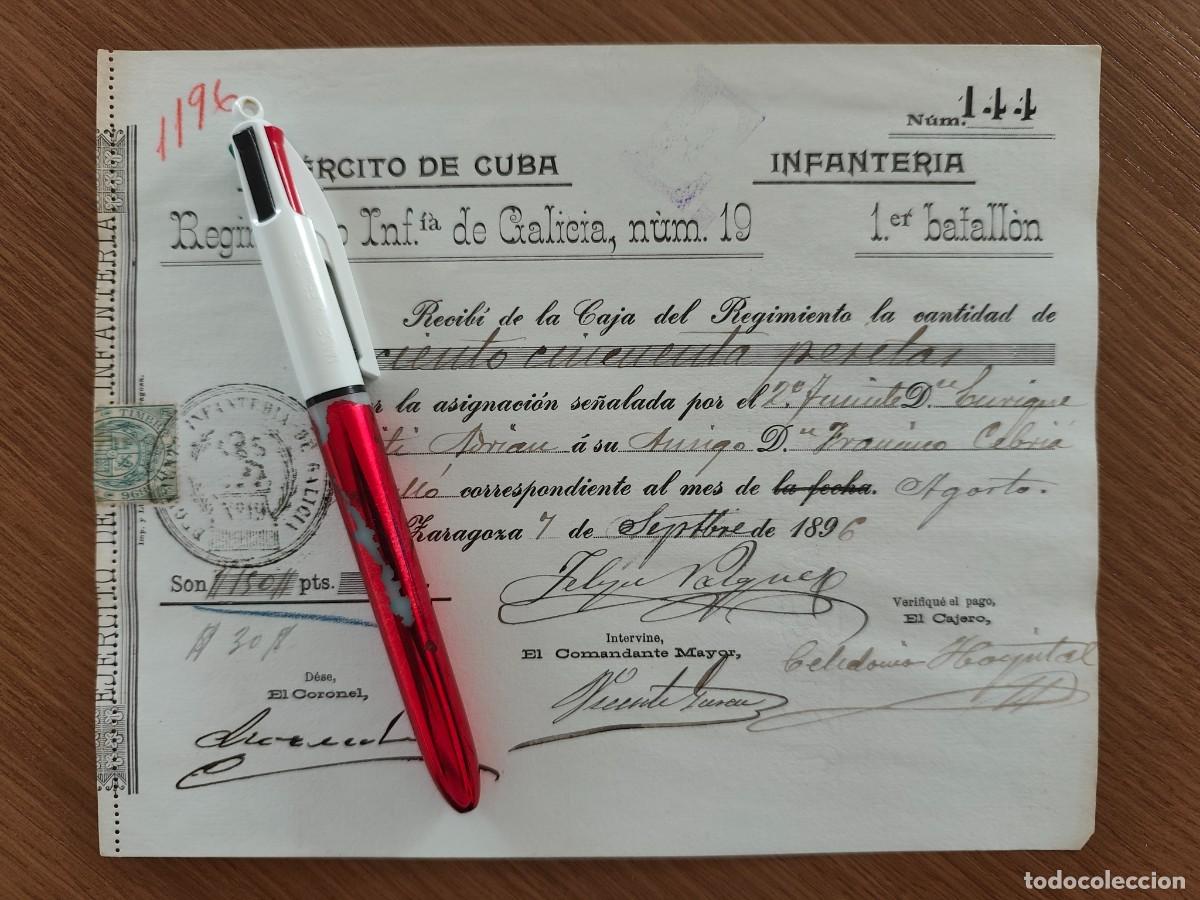 1196
Núm. 144
ÉRCITO DE CUBA INFANTERIA
Regi o Inf.ía de Galicia, núm. 19 1.er batallòn
Recibí de la Caja del Regimiento la cantidad de
ciento cincuenta pesetas
r la asignación señalada por el 2.º D.n Enrique
Adrian á su Amigo D.n Francisco Cebriá
lló correspondiente al mes de la fecha. Agosto.
Zaragoza 7 de Septbre de 1896
Son 150 pts.
30
Felipe Vazquez
Verifiqué el pago,
El Cajero,
Celedonio Hospital
Intervine,
El Comandante Mayor,
Vicente
Dése,
El Coronel,
EJERCITO DE INFANTERIA
TIMB
INFANTERIA DE GALICIA
Imp. y Li
todocoleccion